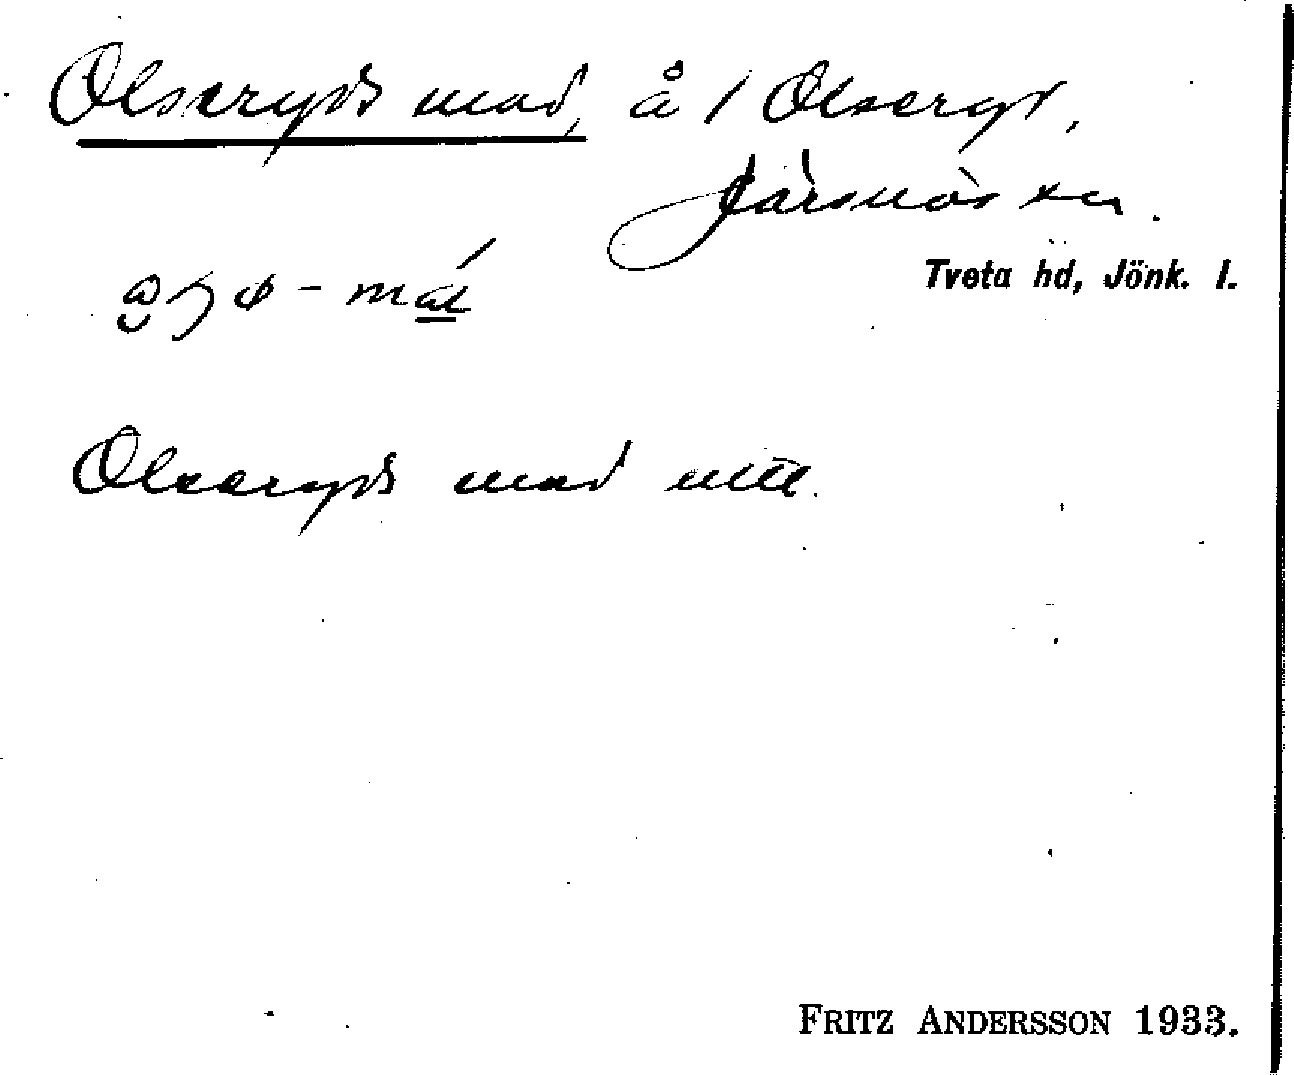 Olseryds mad, å / Olseryd,
Järsnäs sn.
Tveta hd, Jönk. l.
Olseryds mad
FRITZ ANDERSSON 1933.